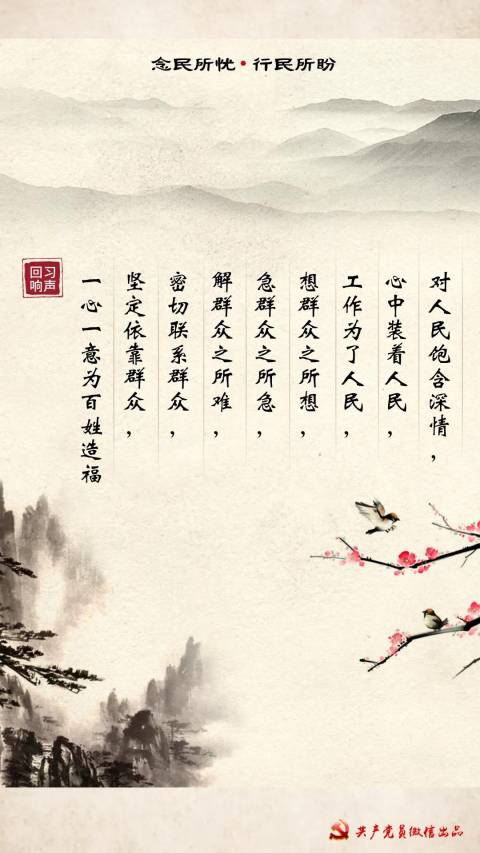 念民所忧·行民所盼
对人民饱含深情，
心中装着人民，
工作为了人民，
想群众之所想，
急群众之所急，
解群众之所难，
密切联系群众，
坚定依靠群众，
一心一意为百姓造福
习声
回响
共产党员微信出品